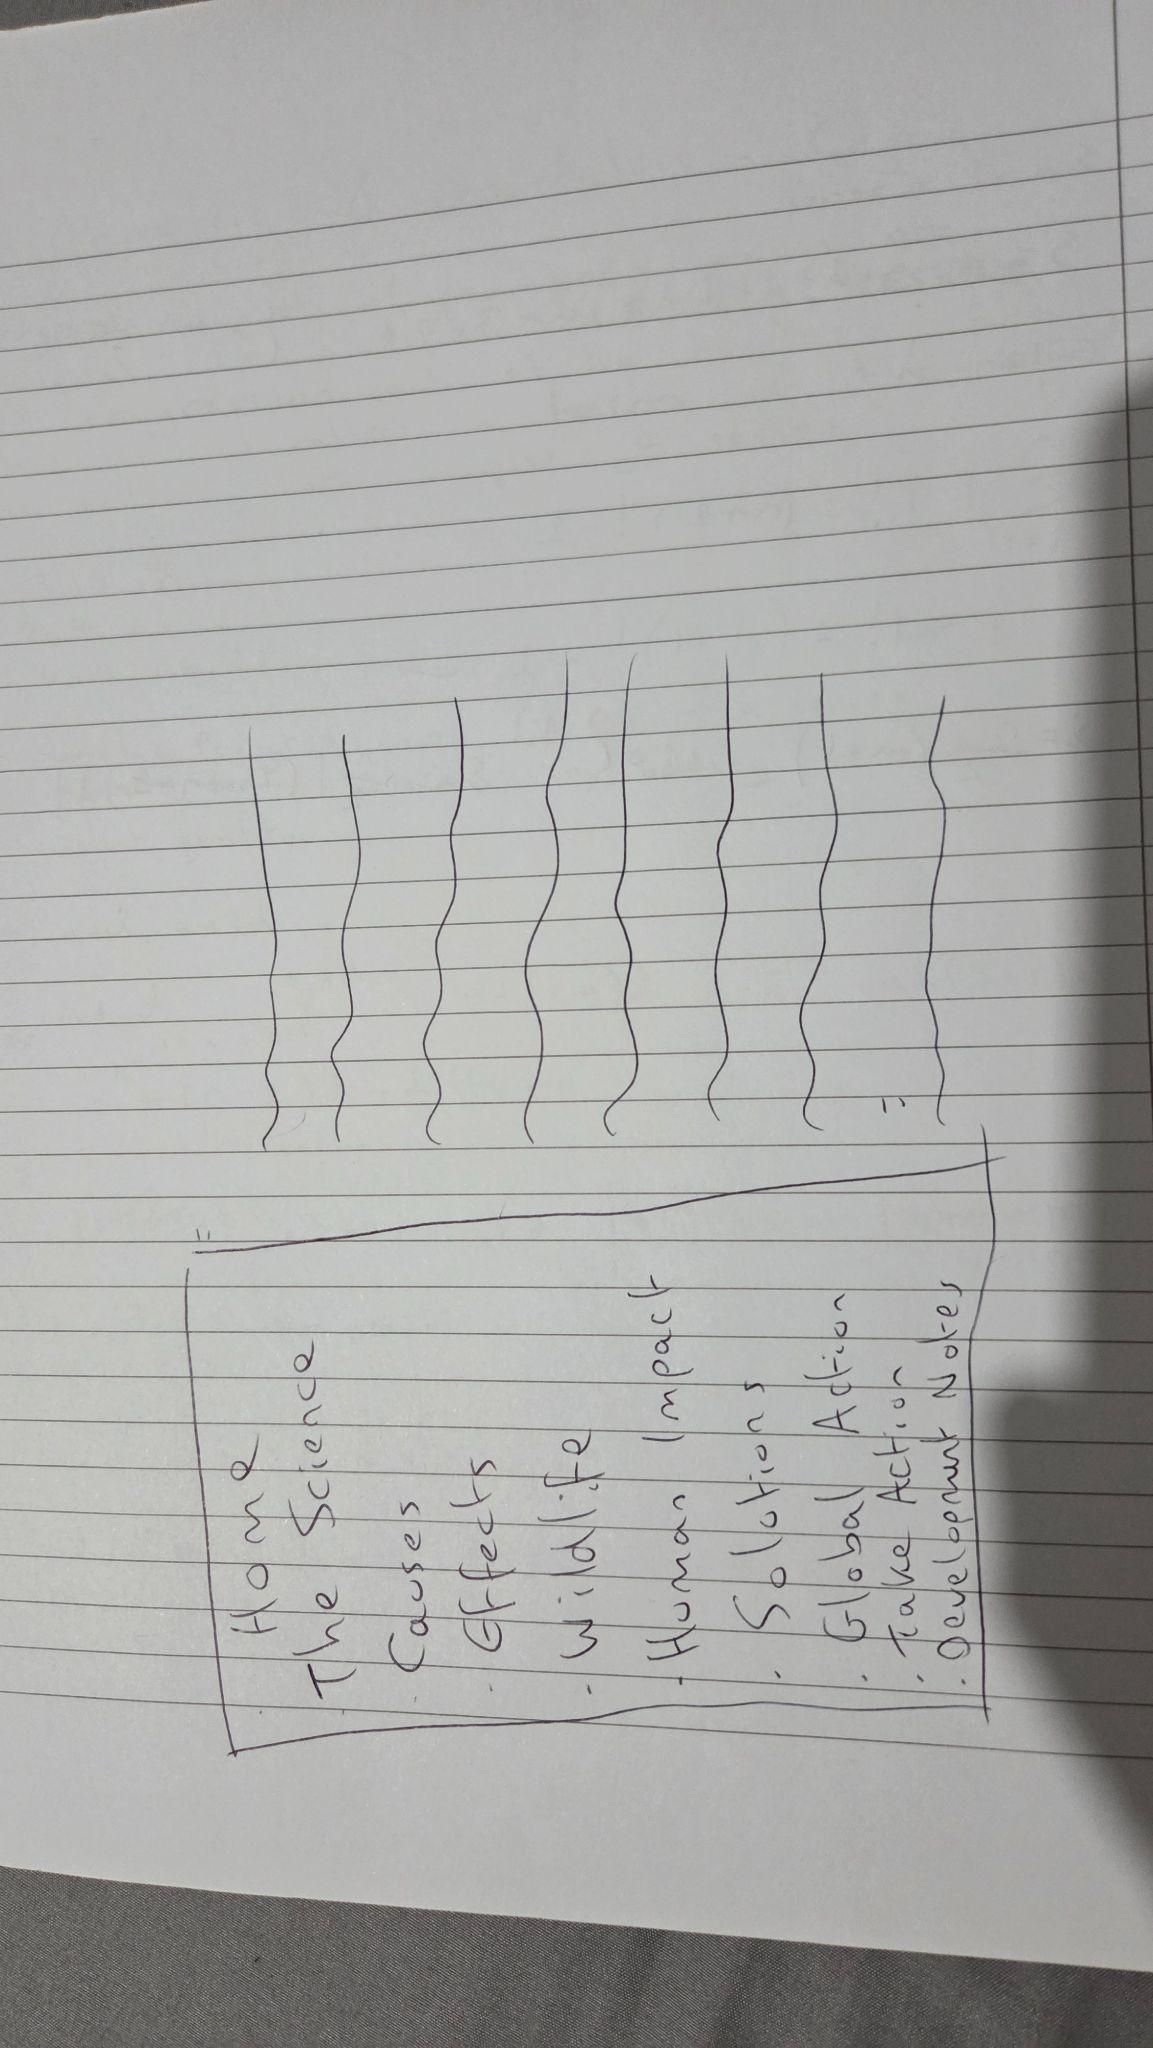 Home
The Science
· Causes
· Effects
· Wildlife
· Human Impact
· Solutions
· Global Action
· Take Action
· Development Notes